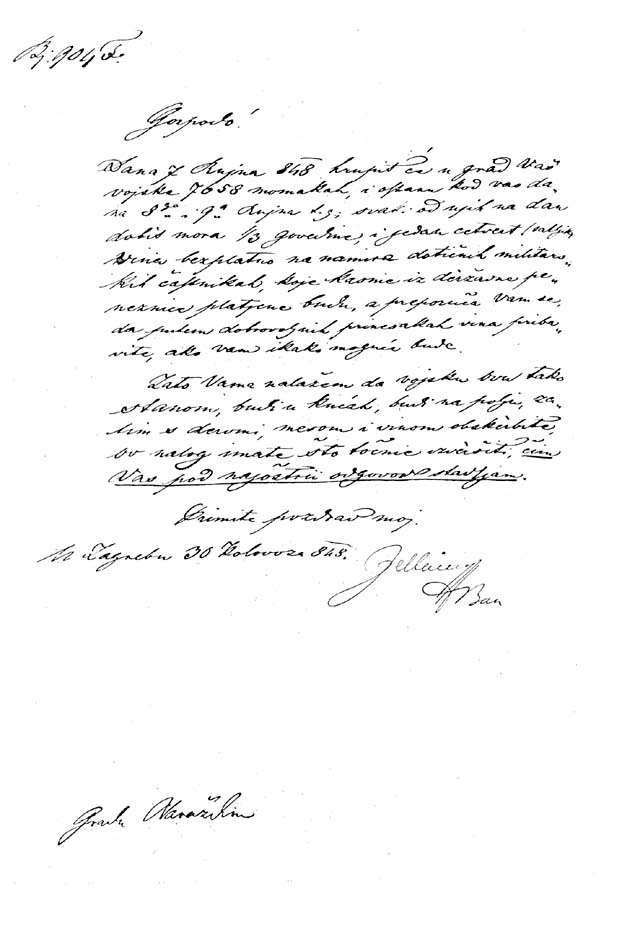 Bj. 904 F.
Gospodo!
Dana 7 Rujna 848 hrupit će u grad Vaš
vojska 7658 momakah, i ostaau kod vas da-
na 8go i 9a Rujna t.g; svaki od njih na dan
dobit mora 1/3 govedine, i jedan četvert
vina bezplatno na namira dotičnih militars-
kih častnikah, koje kasnie iz državne pe-
neznice platjene budu, a preporuča Vam se,
da putem dobrovoljnih prinesakah vina priba-
vite, ako vam ikako moguće bude.
Zato Vama nalažem da vojsku ovu tako
stanom, budi u kućah, budi na polju, za-
tim s dervmi, mesom i vinom obskèrbite,
ov nalog imate što točnie izvèršiti, čim
Vas pod najoštrii odgovor stavljam.
Primite pozdrav moj.
U Zagrebu 30 Kolovoza 848.
Jellačić
Ban
Gradu Varaždinu